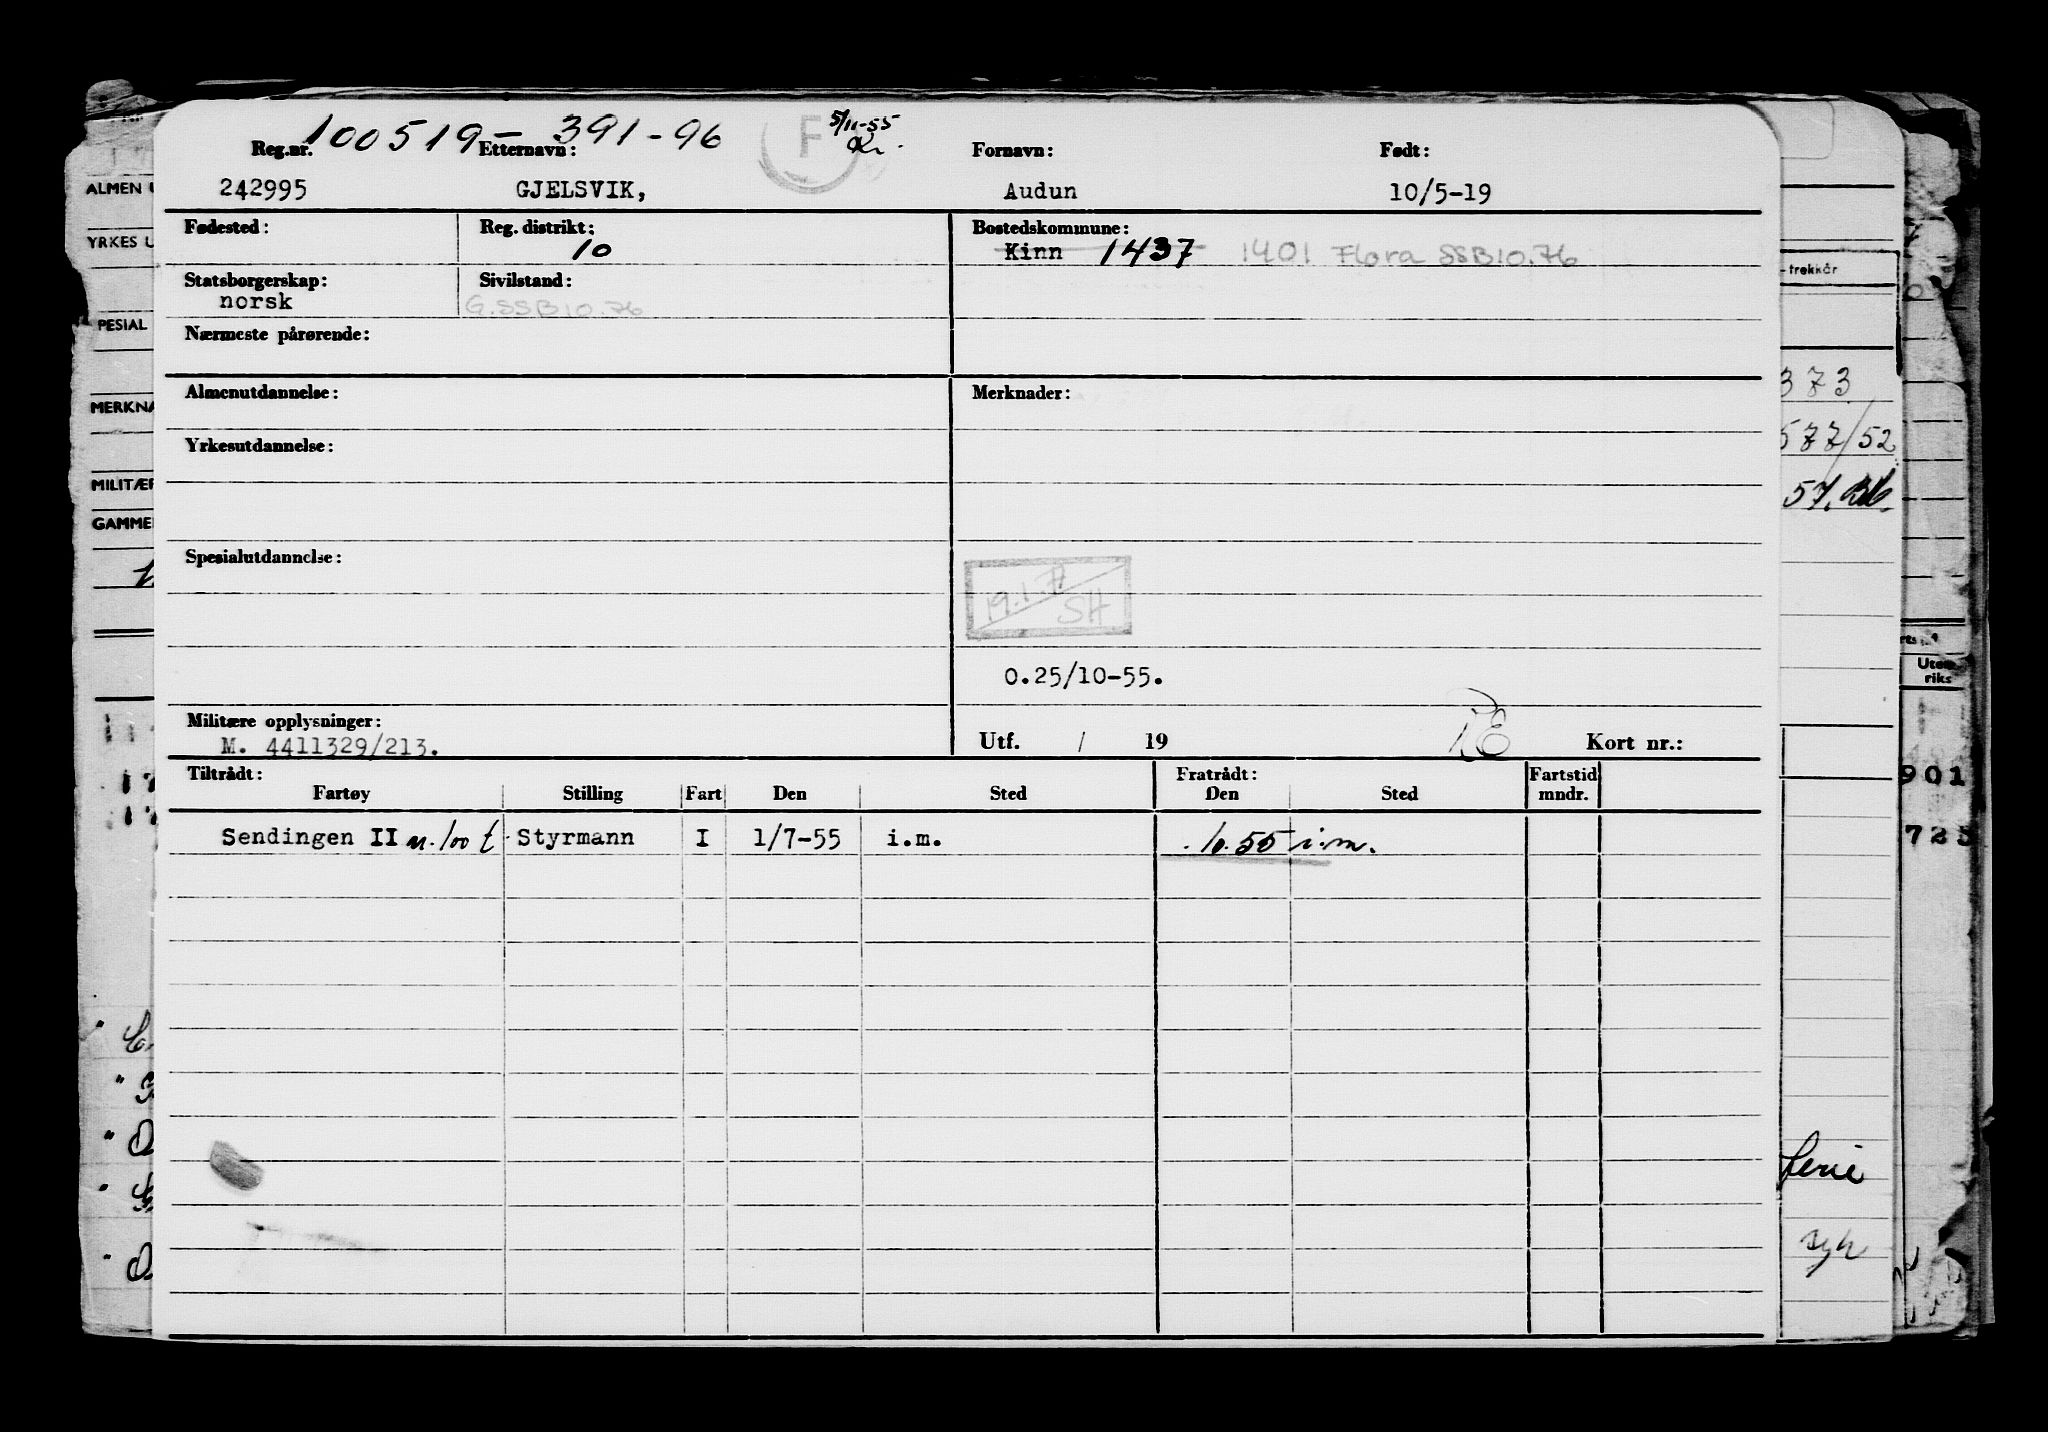 100519-391-96 F 5/11-55
Reg.nr. Etternavn: Fornavn: Født:
242995 GJELSVIK, Audun 10/5-19
Fødested: Reg. distrikt: Bostedskommune:
10 Kinn 1437 1401 Flora SSB10.76
Statsborgerskap: Sivilstand:
norsk G.SSB10.76
Nærmeste pårørende:
Almenutdannelse: Merknader:
Yrkesutdannelse:
Spesialutdannelse:
SH
0.25/10-55.
Militære opplysninger:
M. 4411329/213. Utf. / 19 Kort nr.:
Tiltrådt: Fratrådt: Fartstid
Fartøy Stilling Fart Den Sted Den Sted mndr.
Sendingen II u. 100 t. Styrmann I 1/7-55 i.m. .10.55 i.m.
ALMEN U
YRKES U
PESIAL
MERKNA
MILITÆR
GAMME
-trekkår
373
577/52
57.
Uten-
riks
901
725
ferie
syk